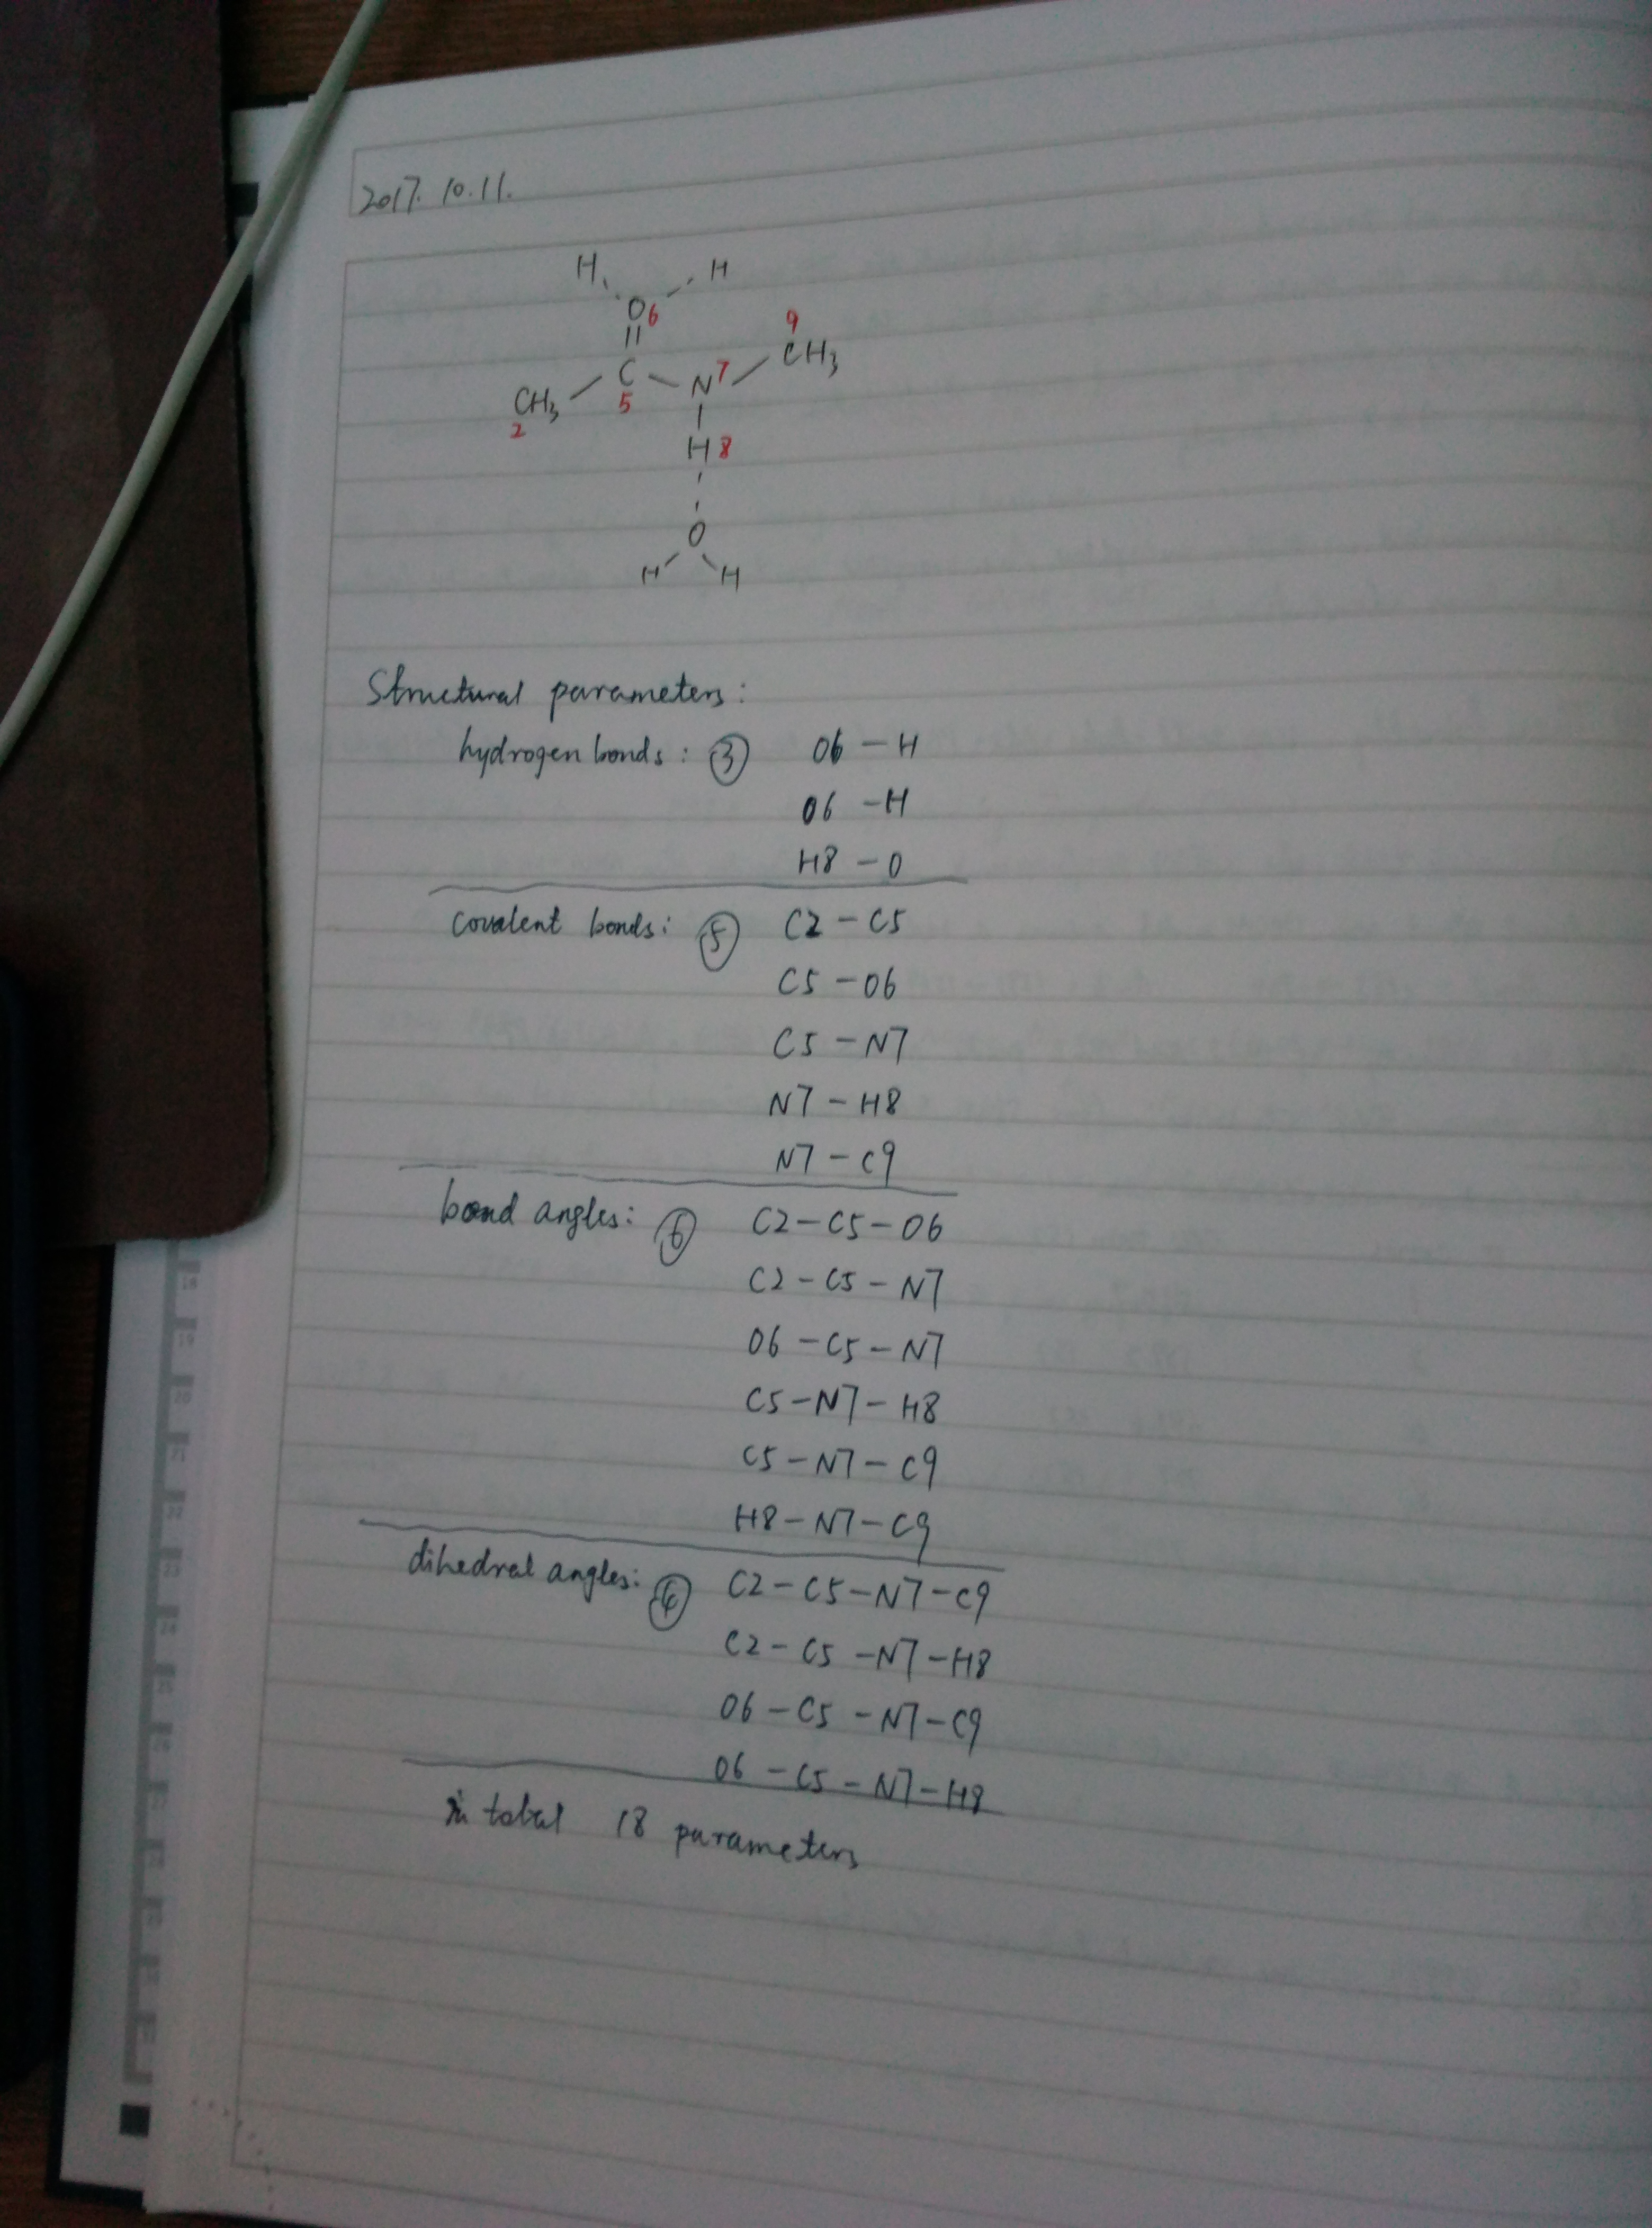 2017. 10.11.
H H
O6
9
CH3
C N7
CH3 5
2
H8
O
H H
Structural parameters:
hydrogen bonds: ③ O6 - H
O6 - H
H8 - O
covalent bonds: ⑤ C2 - C5
C5 - O6
C5 - N7
N7 - H8
N7 - C9
bond angles: ⑥ C2 - C5 - O6
C2 - C5 - N7
O6 - C5 - N7
C5 - N7 - H8
C5 - N7 - C9
H8 - N7 - C9
dihedral angles: ④ C2 - C5 - N7 - C9
C2 - C5 - N7 - H8
O6 - C5 - N7 - C9
O6 - C5 - N7 - H8
in total 18 parameters
18
19
20
21
22
23
24